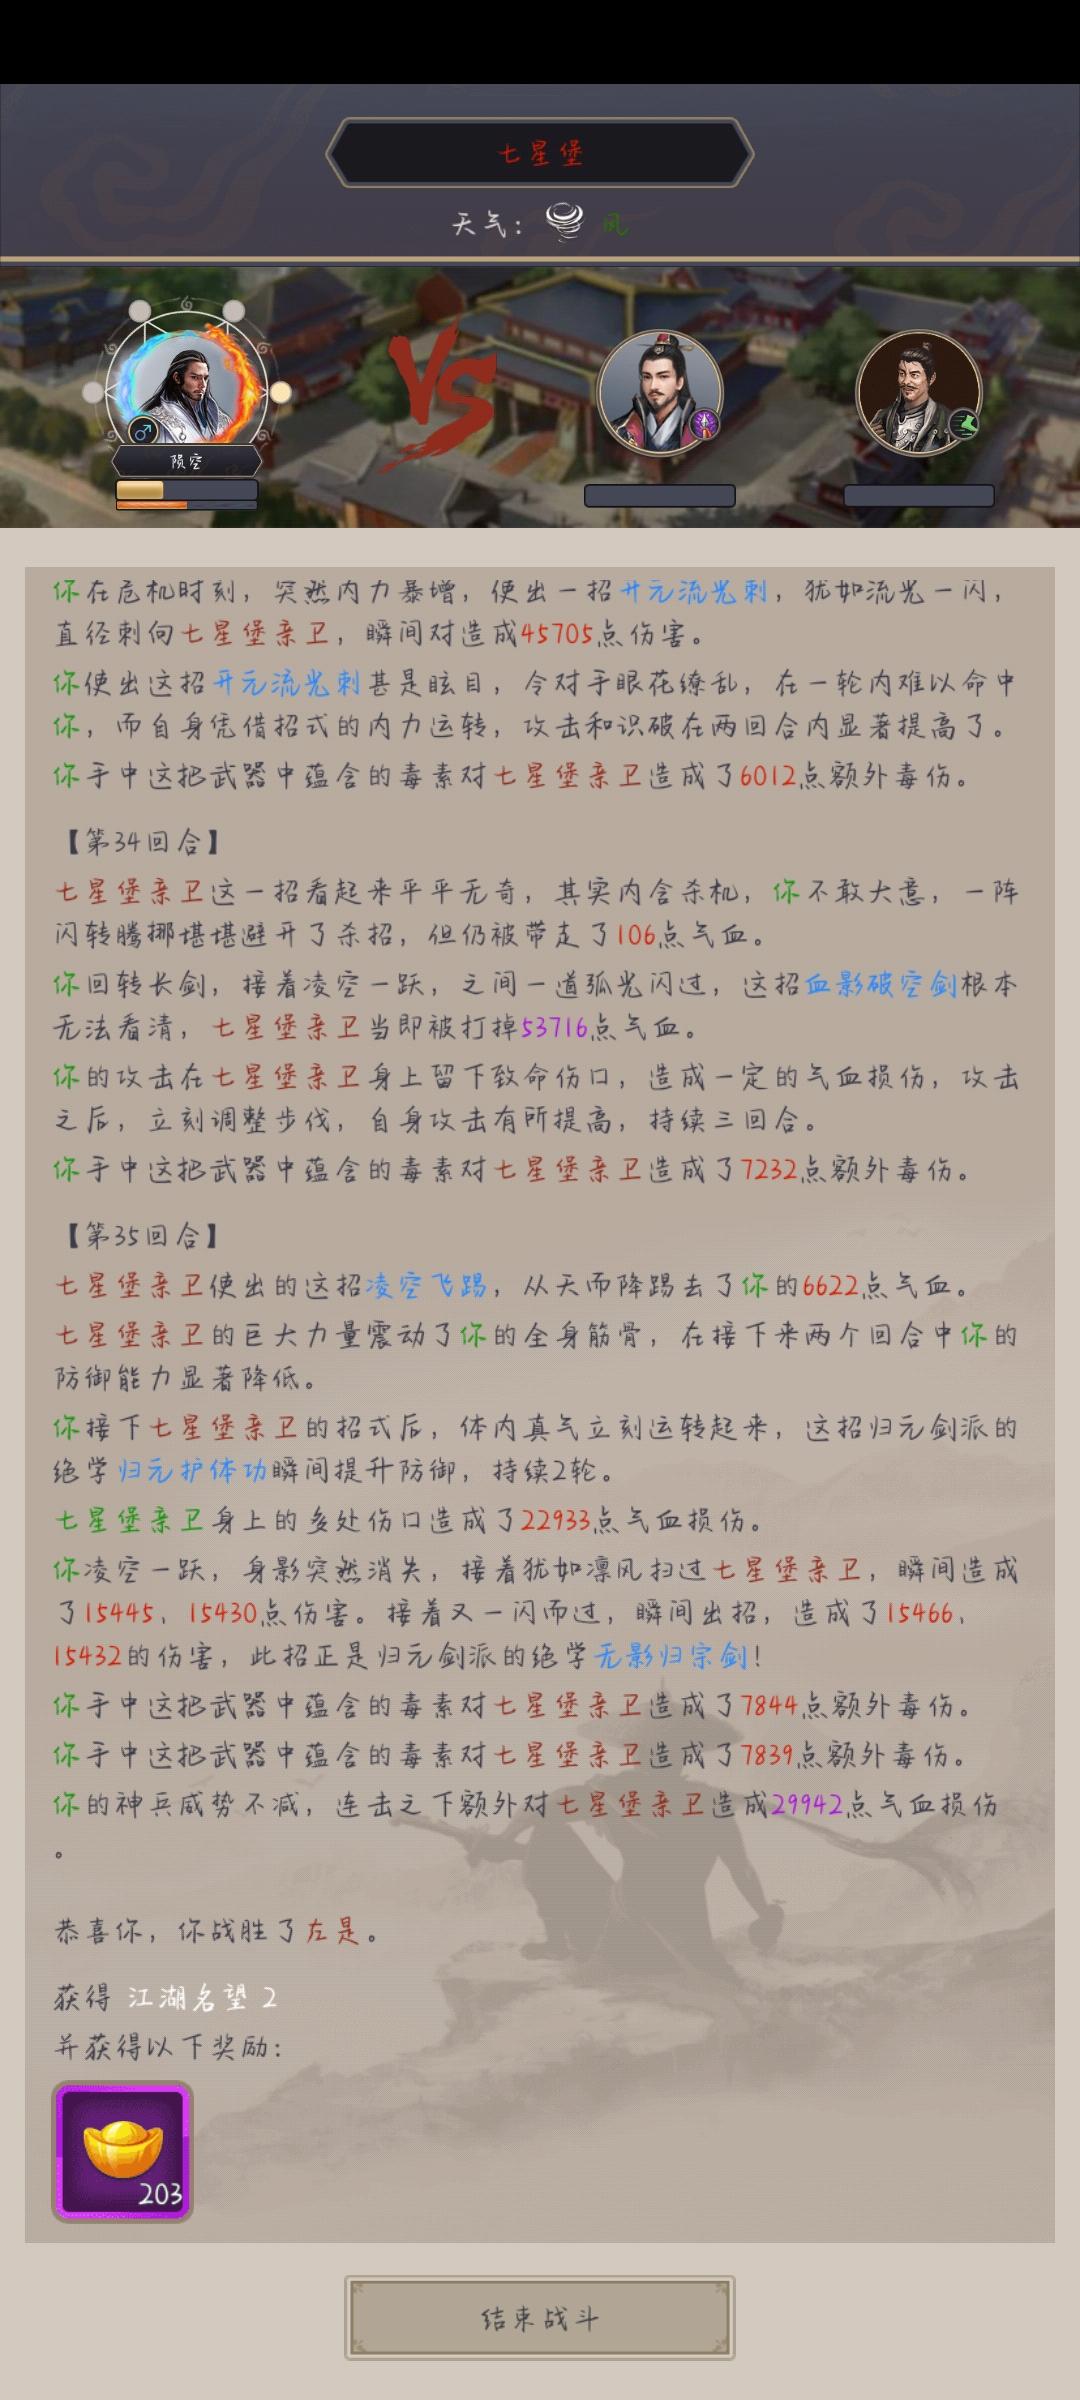 七星堡
天气： 风
VS
陨空
你在危机时刻，突然内力暴增，使出一招开元流光刺，犹如流光一闪，
直径刺向七星堡亲卫，瞬间对造成45705点伤害。
你使出这招开元流光刺甚是眩目，令对手眼花缭乱，在一轮内难以命中
你，而自身凭借招式的内力运转，攻击和识破在两回合内显著提高了。
你手中这把武器中蕴含的毒素对七星堡亲卫造成了6012点额外毒伤。
【第34回合】
七星堡亲卫这一招看起来平平无奇，其实内含杀机，你不敢大意，一阵
闪转腾挪堪堪避开了杀招，但仍被带走了106点气血。
你回转长剑，接着凌空一跃，之间一道弧光闪过，这招血影破空剑根本
无法看清，七星堡亲卫当即被打掉53716点气血。
你的攻击在七星堡亲卫身上留下致命伤口，造成一定的气血损伤，攻击
之后，立刻调整步伐，自身攻击有所提高，持续三回合。
你手中这把武器中蕴含的毒素对七星堡亲卫造成了7232点额外毒伤。
【第35回合】
七星堡亲卫使出的这招凌空飞踢，从天而降踢去了你的6622点气血。
七星堡亲卫的巨大力量震动了你的全身筋骨，在接下来两个回合中你的
防御能力显著降低。
你接下七星堡亲卫的招式后，体内真气立刻运转起来，这招归元剑派的
绝学归元护体功瞬间提升防御，持续2轮。
七星堡亲卫身上的多处伤口造成了22933点气血损伤。
你凌空一跃，身影突然消失，接着犹如凛风扫过七星堡亲卫，瞬间造成
了15445、15430点伤害。接着又一闪而过，瞬间出招，造成了15466、
15432的伤害，此招正是归元剑派的绝学无影归宗剑！
你手中这把武器中蕴含的毒素对七星堡亲卫造成了7844点额外毒伤。
你手中这把武器中蕴含的毒素对七星堡亲卫造成了7839点额外毒伤。
你的神兵威势不减，连击之下额外对七星堡亲卫造成29942点气血损伤
。
恭喜你，你战胜了左是。
获得 江湖名望 2
并获得以下奖励：
203
结束战斗